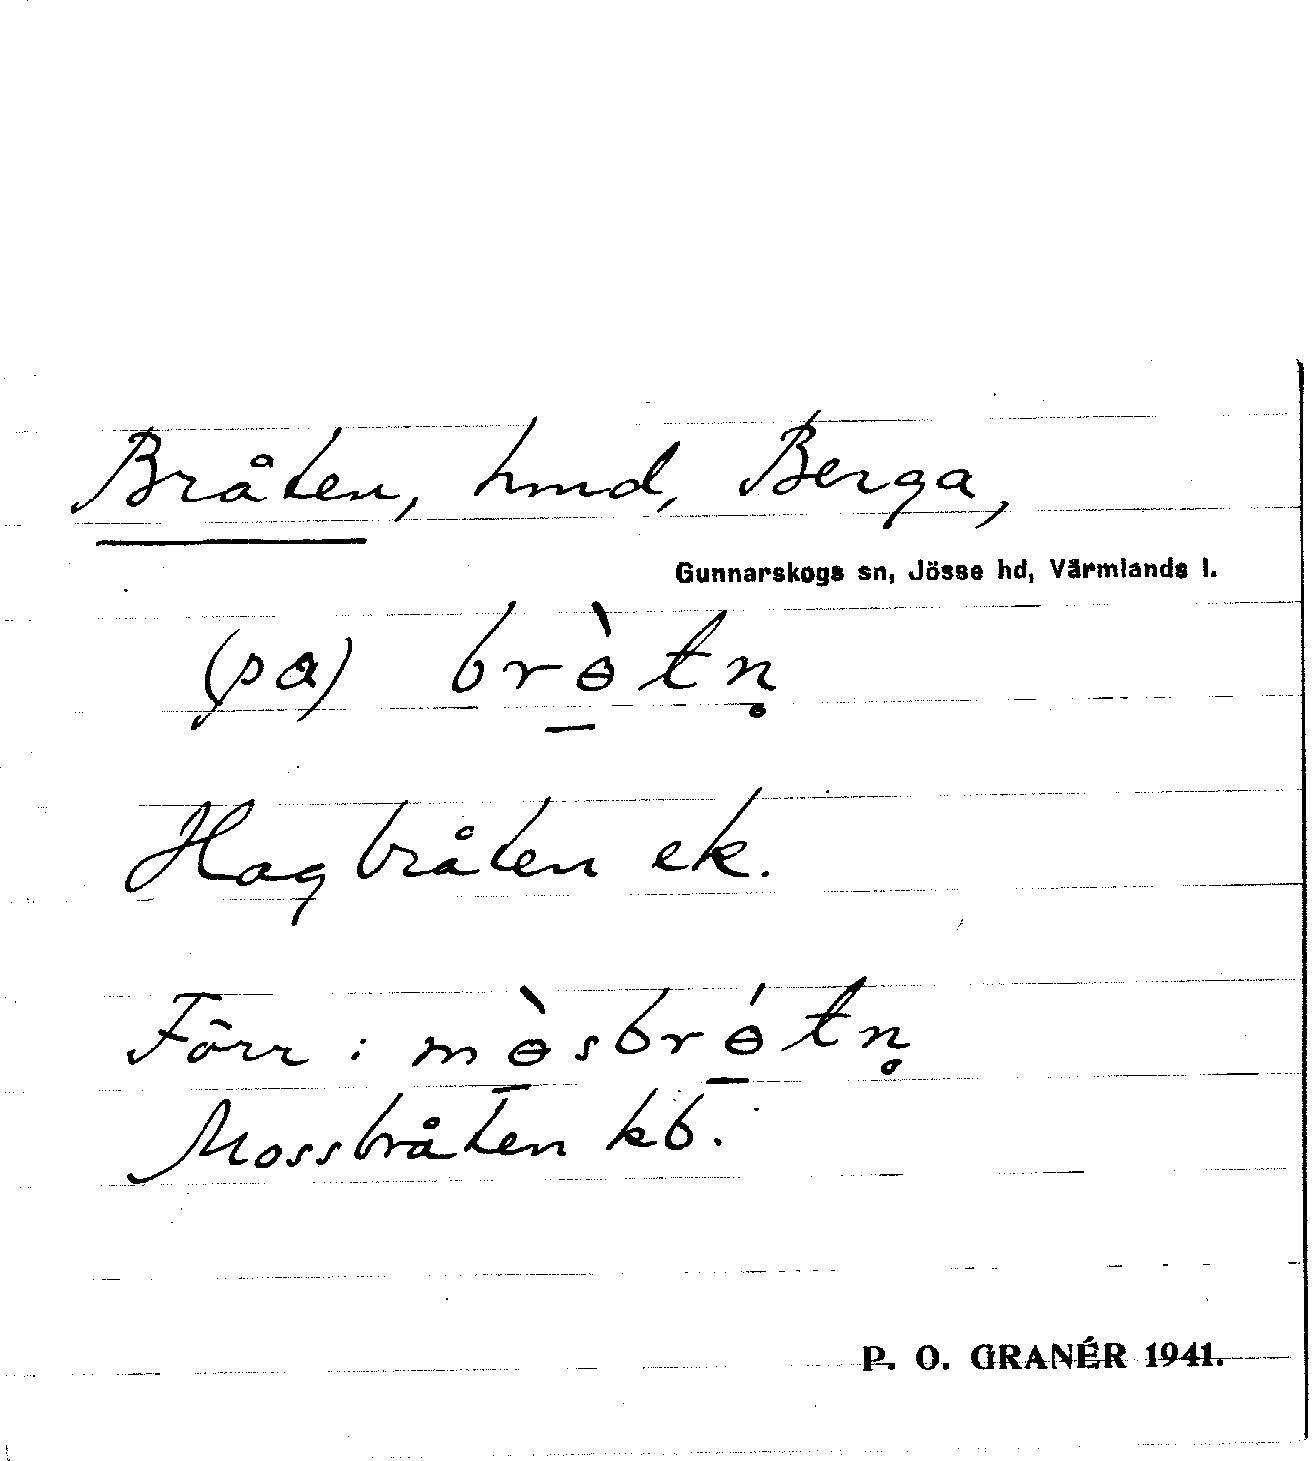 Bråten, hmd, Berga,
Gunnarskogs sn, Jösse hd, Värmlands l.
(pa) brɵ̀tn̥
Hagbråten ek.
Förr: mɵ̀sbrɵ́tn̥
Mossbråten kb.
P. O. GRANÉR 1941.